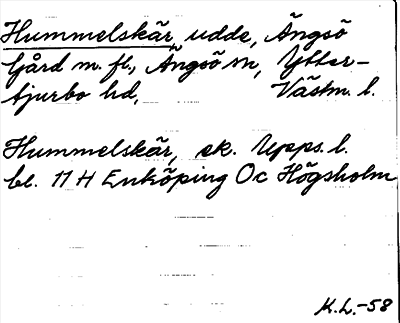 Hummelskär, udde, Ängsö
Gård m. fl., Ängsö sn, Ytter-
tjurbo hd, Västm. l.
Hummelskär, ek. Upps. l.
bl. 11 H Enköping Oc Högsholm
K.L.-58